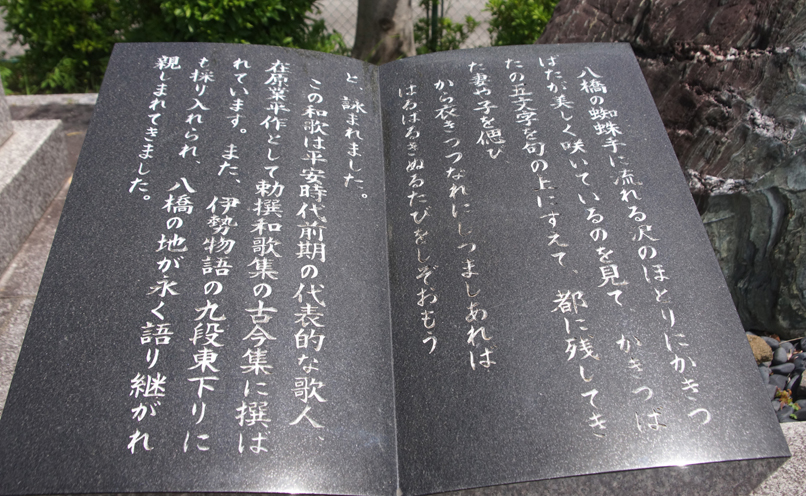 八橋の蜘蛛手に流れる沢のほとりにかきつ
ばたが美しく咲いているのを見て、かきつは
たの五文字を句の上にすえて、都に残してき
た妻や子を偲び、
から衣きつつなれにしつましあれは
はるはるきぬるたびをしぞおもう
と、詠まれました。
この和歌は平安時代前期の代表的な歌人、
在原業平作として勅撰和歌集の古今集に撰ば
れています。また、伊勢物語の九段東下りに
も採り入れられ、八橋の地が永く語り継がれ
親しまれてきました。